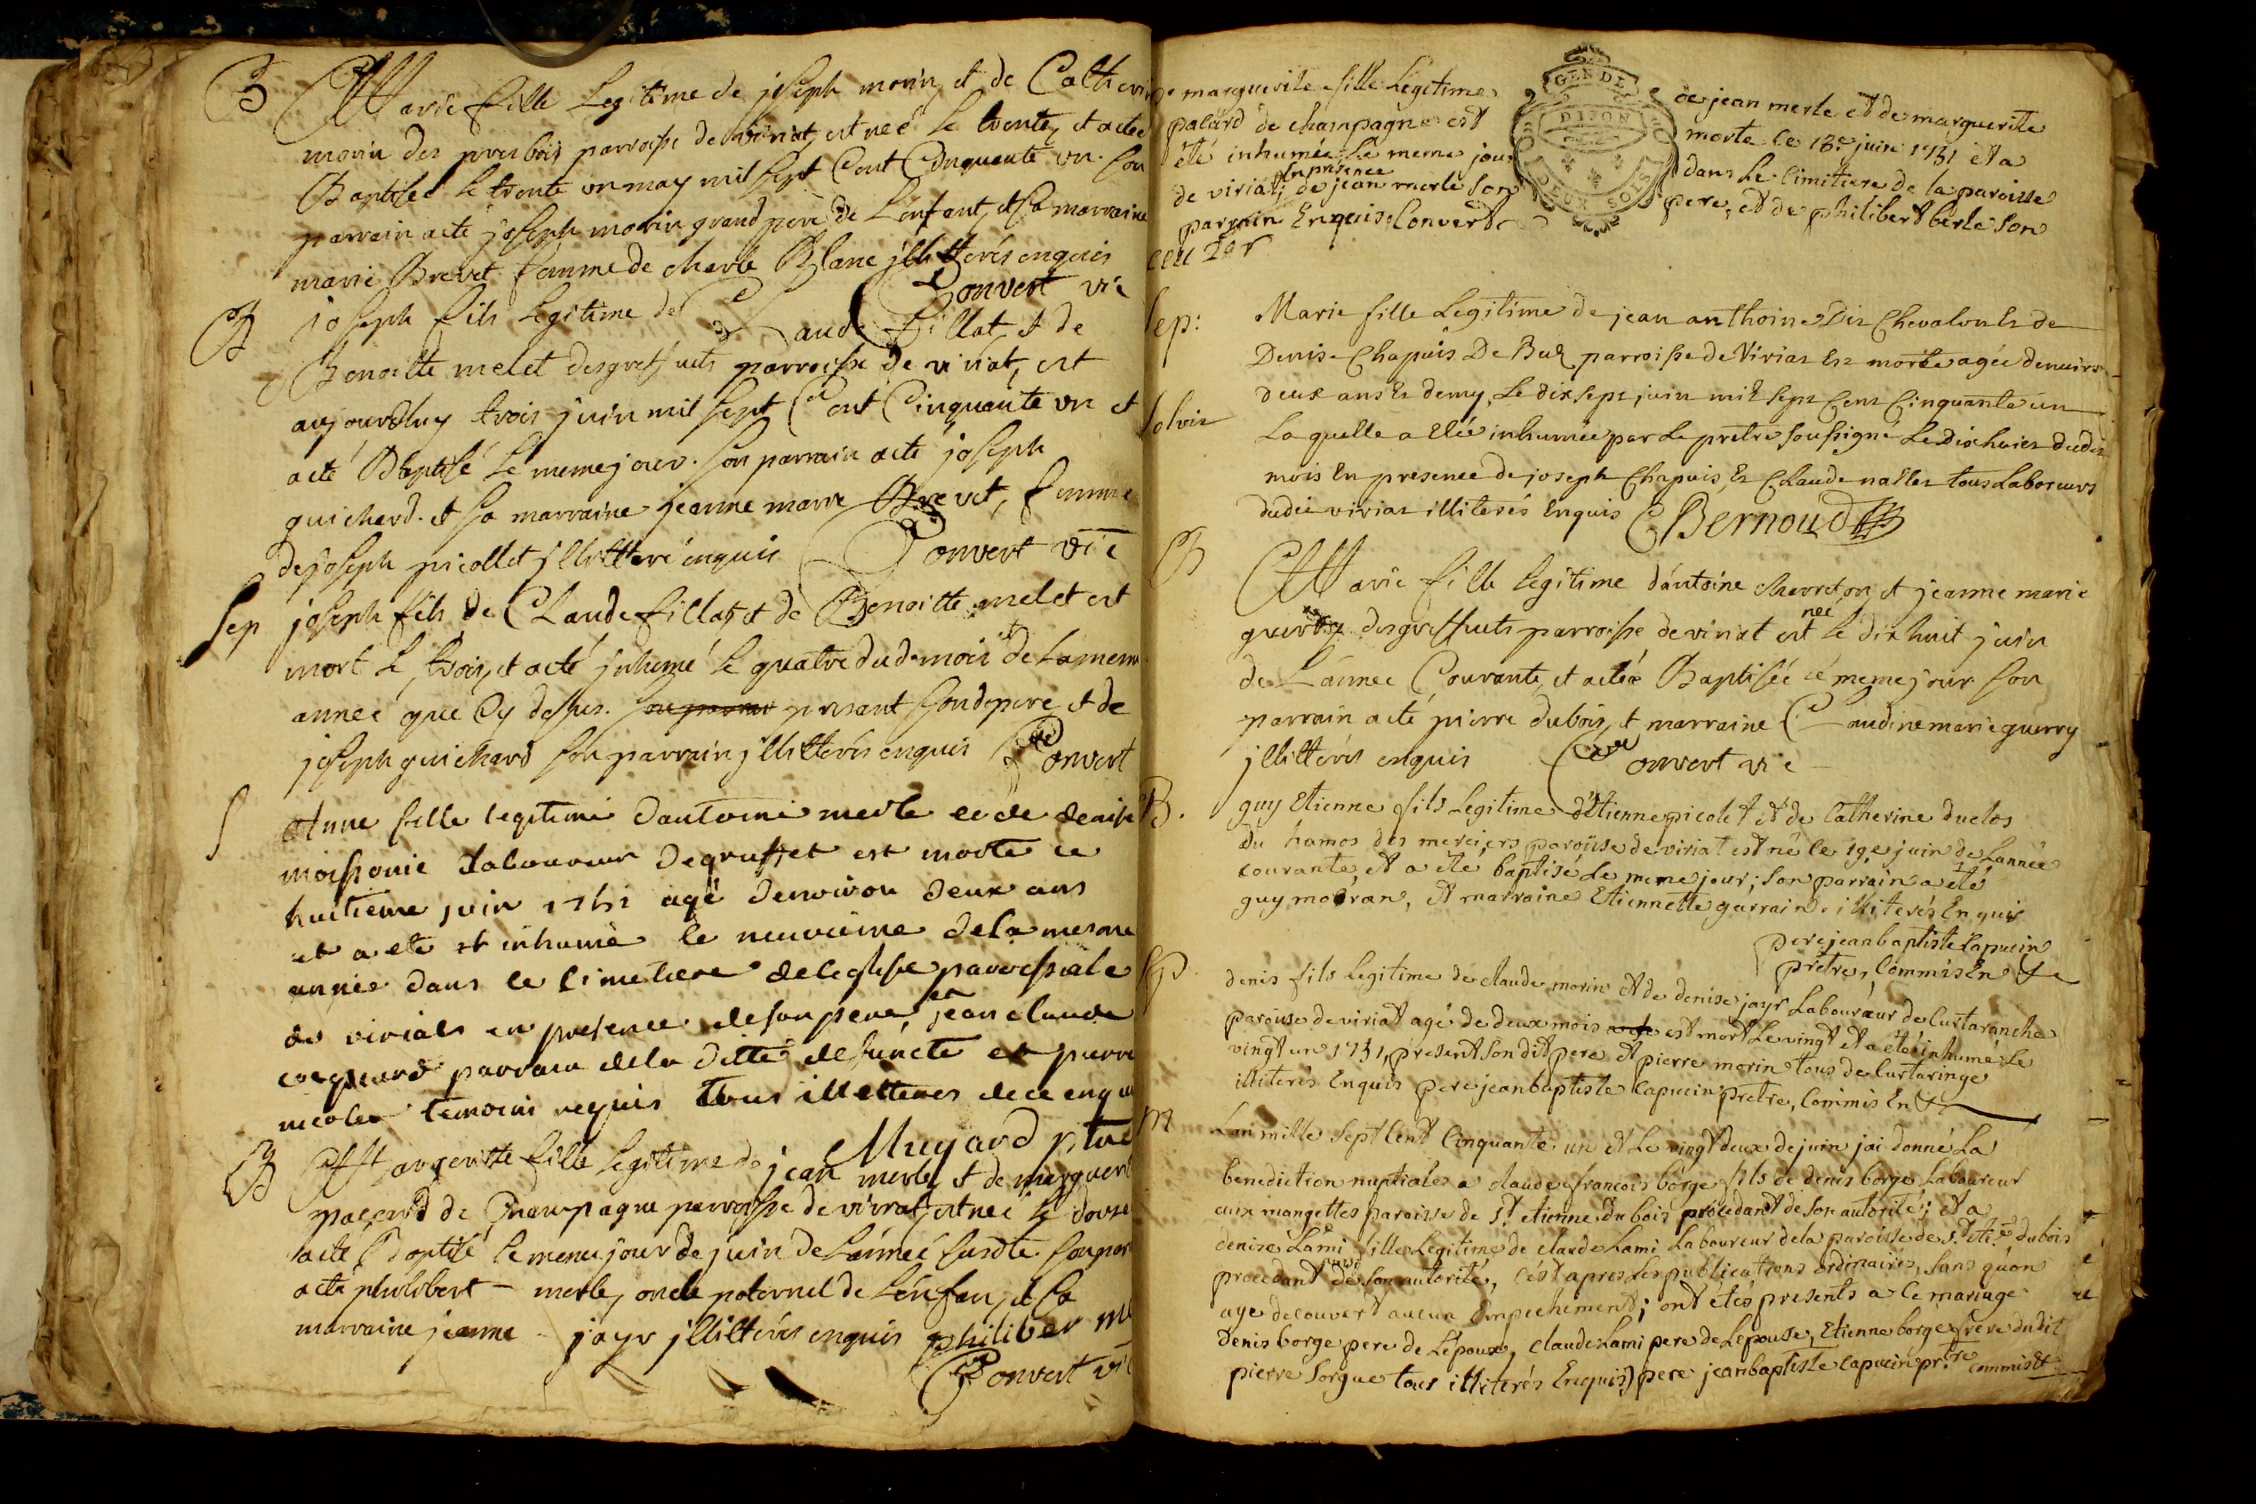 B Marie fille Legitime de joseph morin, et de Catherine
morin des pres bois parroisse de viriat, est neé le trente, et a eté
Baptisée le trente un may mil sept Cent Cinquante un. son
parrain a eté joseph morin grand pere de L'enfant, et sa marraine
marie Brevet femme de charle Blanc jllitterés enquis
Convert vic
B joseph fils Legitime de Claude fillat, et de
Benoitte melet parroisse de viriat, est
aujourdhuy trois juin mil sept Cent Cinquante un et
a eté Baptisé le meme jour. son parrain a eté joseph
guichard. et sa marraine jeanne marie Brevet, femme
de joseph picollet jllitteré enquis Convert vic
Sep joseph fils de Claude fillat, et de Benoitte melet est
mort le trois, et a eté jnhumé le quatre dud. mois et de la meme
annee que Cy dessus. present sond. pere et de
joseph guichard son parrain jllitterés enquis Convert
S Anne fille legitime d'antoine merle et de denise
moissonie Laboureur de gruffet est morte ce
huitieme juin 1751 agé d'environ deux ans
et a ete et inhumé le neuvieme de la mesme
année dans le cimetiere de leglise parroissiale
de viriat en presence de son pere, et jean claude
parrain de la ditte defuncte et pierre
nicolet temoins requis tous illetteres de ce enquis
Mugard ptre
B Margueritte fille legitime de jean merle, et de marguerite
pacard de Champagne parroisse de viriat, est neé le douse
a eté Baptisé le meme jour de juin de L'année susdte son par
a eté philibert merle, oncle paternel de L'enfan, et sa
marraine jeanne jayr jllitterés enquis philiber me
Convert vic
marguerite fille Legitime de jean merle et de marguerite
pacard de champagne est morte le 13e juin 1751 et a
été inhumée Le meme jour dans Le cimitiere de la paroisse
de viriat; en presence de jean merle son pere, et de philibert berle son
parrain Enquis Convert
GEN DE
DIJON
DEUX SOLS
Sep: Marie fille Legitime de jean anthoine Dit Chevalon Et de
Denise Chapuis De Buz parroisse de Viriat Est morte agée denviron
deux ans Et demy, Le dix sept juin mil sept Cent Cinquante un
Laquelle a Etée inhumée par Le prêtre soussigné Le Dix huit dudit
mois En presence de joseph Chapuis, Et Claude nallet tous Laboureurs
dudit viriat illiterés Enquis Bernoud
B Marie fille legitime d'antoine chevreton, et jeanne marie
parroisse de viriat est neé le dix huit juin
de L'annee Courante, et a etée Baptisée le meme jour son
parrain a eté pierre dubois, et marraine Claudine marie guerry
jllitterés enquis Convert vic
B. guy Etienne fils Legitime d'Etienne picolet et de Catherine duclos
du hamos des merciers paroisse de viriat est né le 19e juin de L'année
courante, et a eté baptisé Le meme jour; son parrain a été
guy moiran, et marraine Etiennette garrain, illiterés Enquis
pere jean baptiste Capucin
prètre, Commis En
Sp. denis fils Legitime de claude morin et de denise jayr Laboureur de Curtaranche
paroisse de viriat agé de deux mois est mort Le vingt et a eté inhumé Le
vingt un 1751, present son dit pere et pierre morin tous de Curtaringe
illiterés Enquis pere jean baptiste Capucin prètre, Commis En
M Lan mille sept Cent Cinquante un et Le vingt deux de juin jai donné La
benediction nuptiale a claude francois borge fils de denis borge Laboureur
aux mangettes paroisse de St etienne du bois procedant de son autorité; et a
denise Lami fille Legitime de claude Lami Laboureur de la paroisse de St Etie du bois
procedant de son autorité, c'est apres Les publications ordinaires, sans qu'on
aye decouvert aucun Empechement; ont étés presents a ce mariage
Denis borge pere de L'epoux, claude Lami pere de L'epouse, Etienne borge frere dudit
pierre Sorgue tous illiterés Enquis pere jean baptiste capucin prtre commis Et